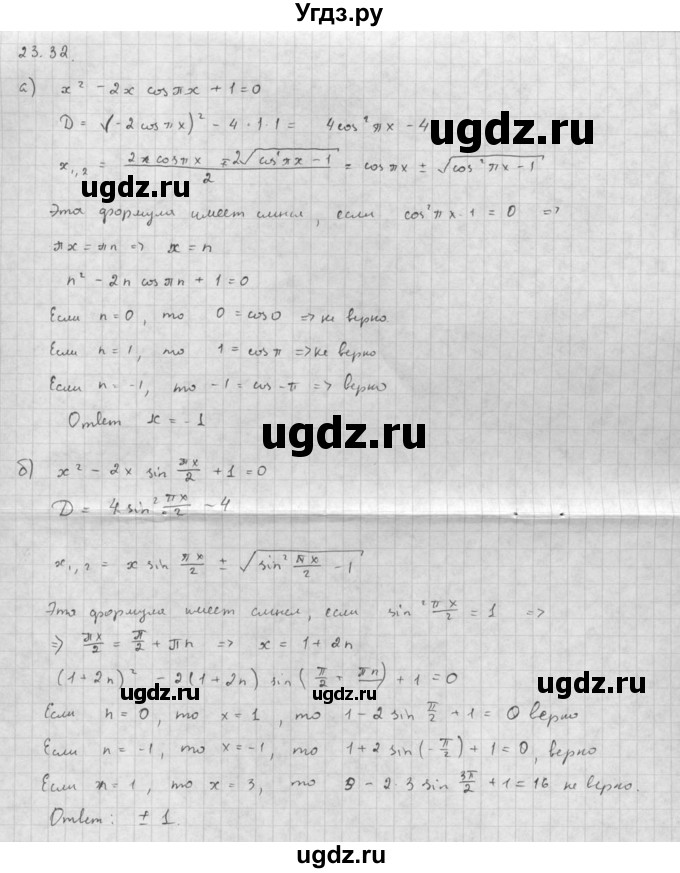 Угдз.ру
23.32.
а) x² - 2x cos πx + 1 = 0
D = (-2 cos πx)² - 4·1·1 = 4cos²πx - 4
ugdz.ru
x₁,₂ = (2x cos πx ± 2√(cos²πx - 1))/2 = cos πx ± √(cos²πx - 1)
ugdz.ru
Эта формула имеет смысл, если cos²πx - 1 = 0 =>
πx = πn => x = n
n² - 2n cos πn + 1 = 0
Если n = 0, то 0 = cos 0 => не верно.
Если n = 1, то 1 = cos π => не верно
Если n = -1, то -1 = cos -π => верно
Ответ x = -1
ugdz.ru
б) x² - 2x sin πx/2 + 1 = 0
D = 4 sin² πx/2 - 4
ugdz.ru
x₁,₂ = x sin πx/2 ± √(sin² πx/2 - 1)
Эта формула имеет смысл, если sin² πx/2 = 1 =>
ugdz.ru
=> πx/2 = π/2 + πn => x = 1 + 2n
(1+2n)² - 2(1+2n) sin(π/2 + πn) + 1 = 0
ugdz.ru
Если n = 0, то x = 1, то 1 - 2 sin π/2 + 1 = 0 верно
Если n = -1, то x = -1, то 1 + 2 sin(-π/2) + 1 = 0, верно
Если n = 1, то x = 3, то 9 - 2·3 sin 3π/2 + 1 = 16 не верно.
Ответ: ± 1.
ugdz.ru
ugdz.ru